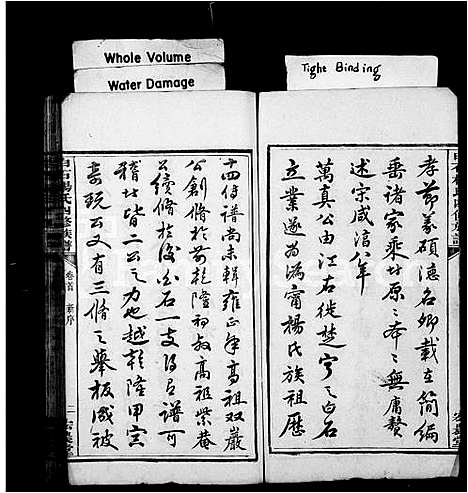 Whole Volume
Water Damage
Tight Binding
孝節義碩德名卿載在簡編
垂諸家乘班班原原本本無庸贅
述宗咸淳八年
萬真公由江右徙楚寧之白石
立業遂為溈甯楊氏族祖歷
十四傳譜尚未輯雍正年高祖双巖
公創脩於前乾隆初叔高祖紫菴
公續脩於後白石一支得有譜可
稽皆二公之力也越乾隆甲寅
玩公又有三脩之舉板藏被
白石楊氏四修族譜
卷首